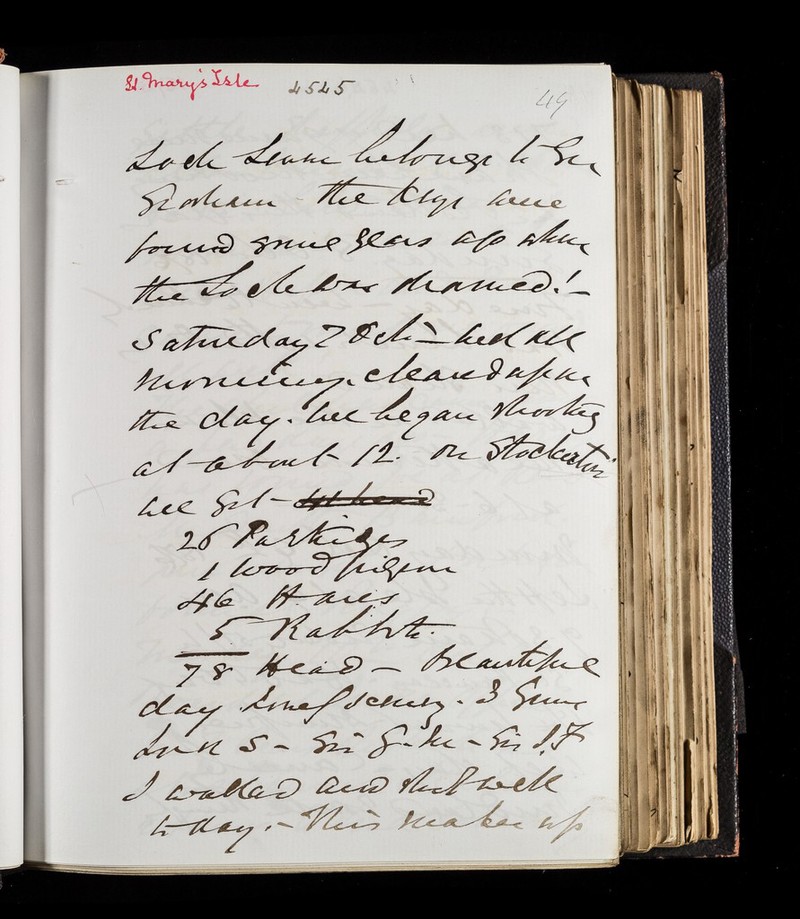 St. Mary's Isle 4525 49
Loch belongs to Sir
Graham - The Keys were
found some years ago when
the Loch was drained! -
Saturday 7 Oct - wet all
morning. cleared up in
the day. We began shooting
at about 12. on Stockerton
we got - 
26 Partridges
1 Wood pigeon
46 Hares
5 Rabbits.
78 Head - beautiful
day lovely scenery. 3 Guns
Lord S - Sir G. M - Sir J. F
I walked and shot well
to day. - This makes up